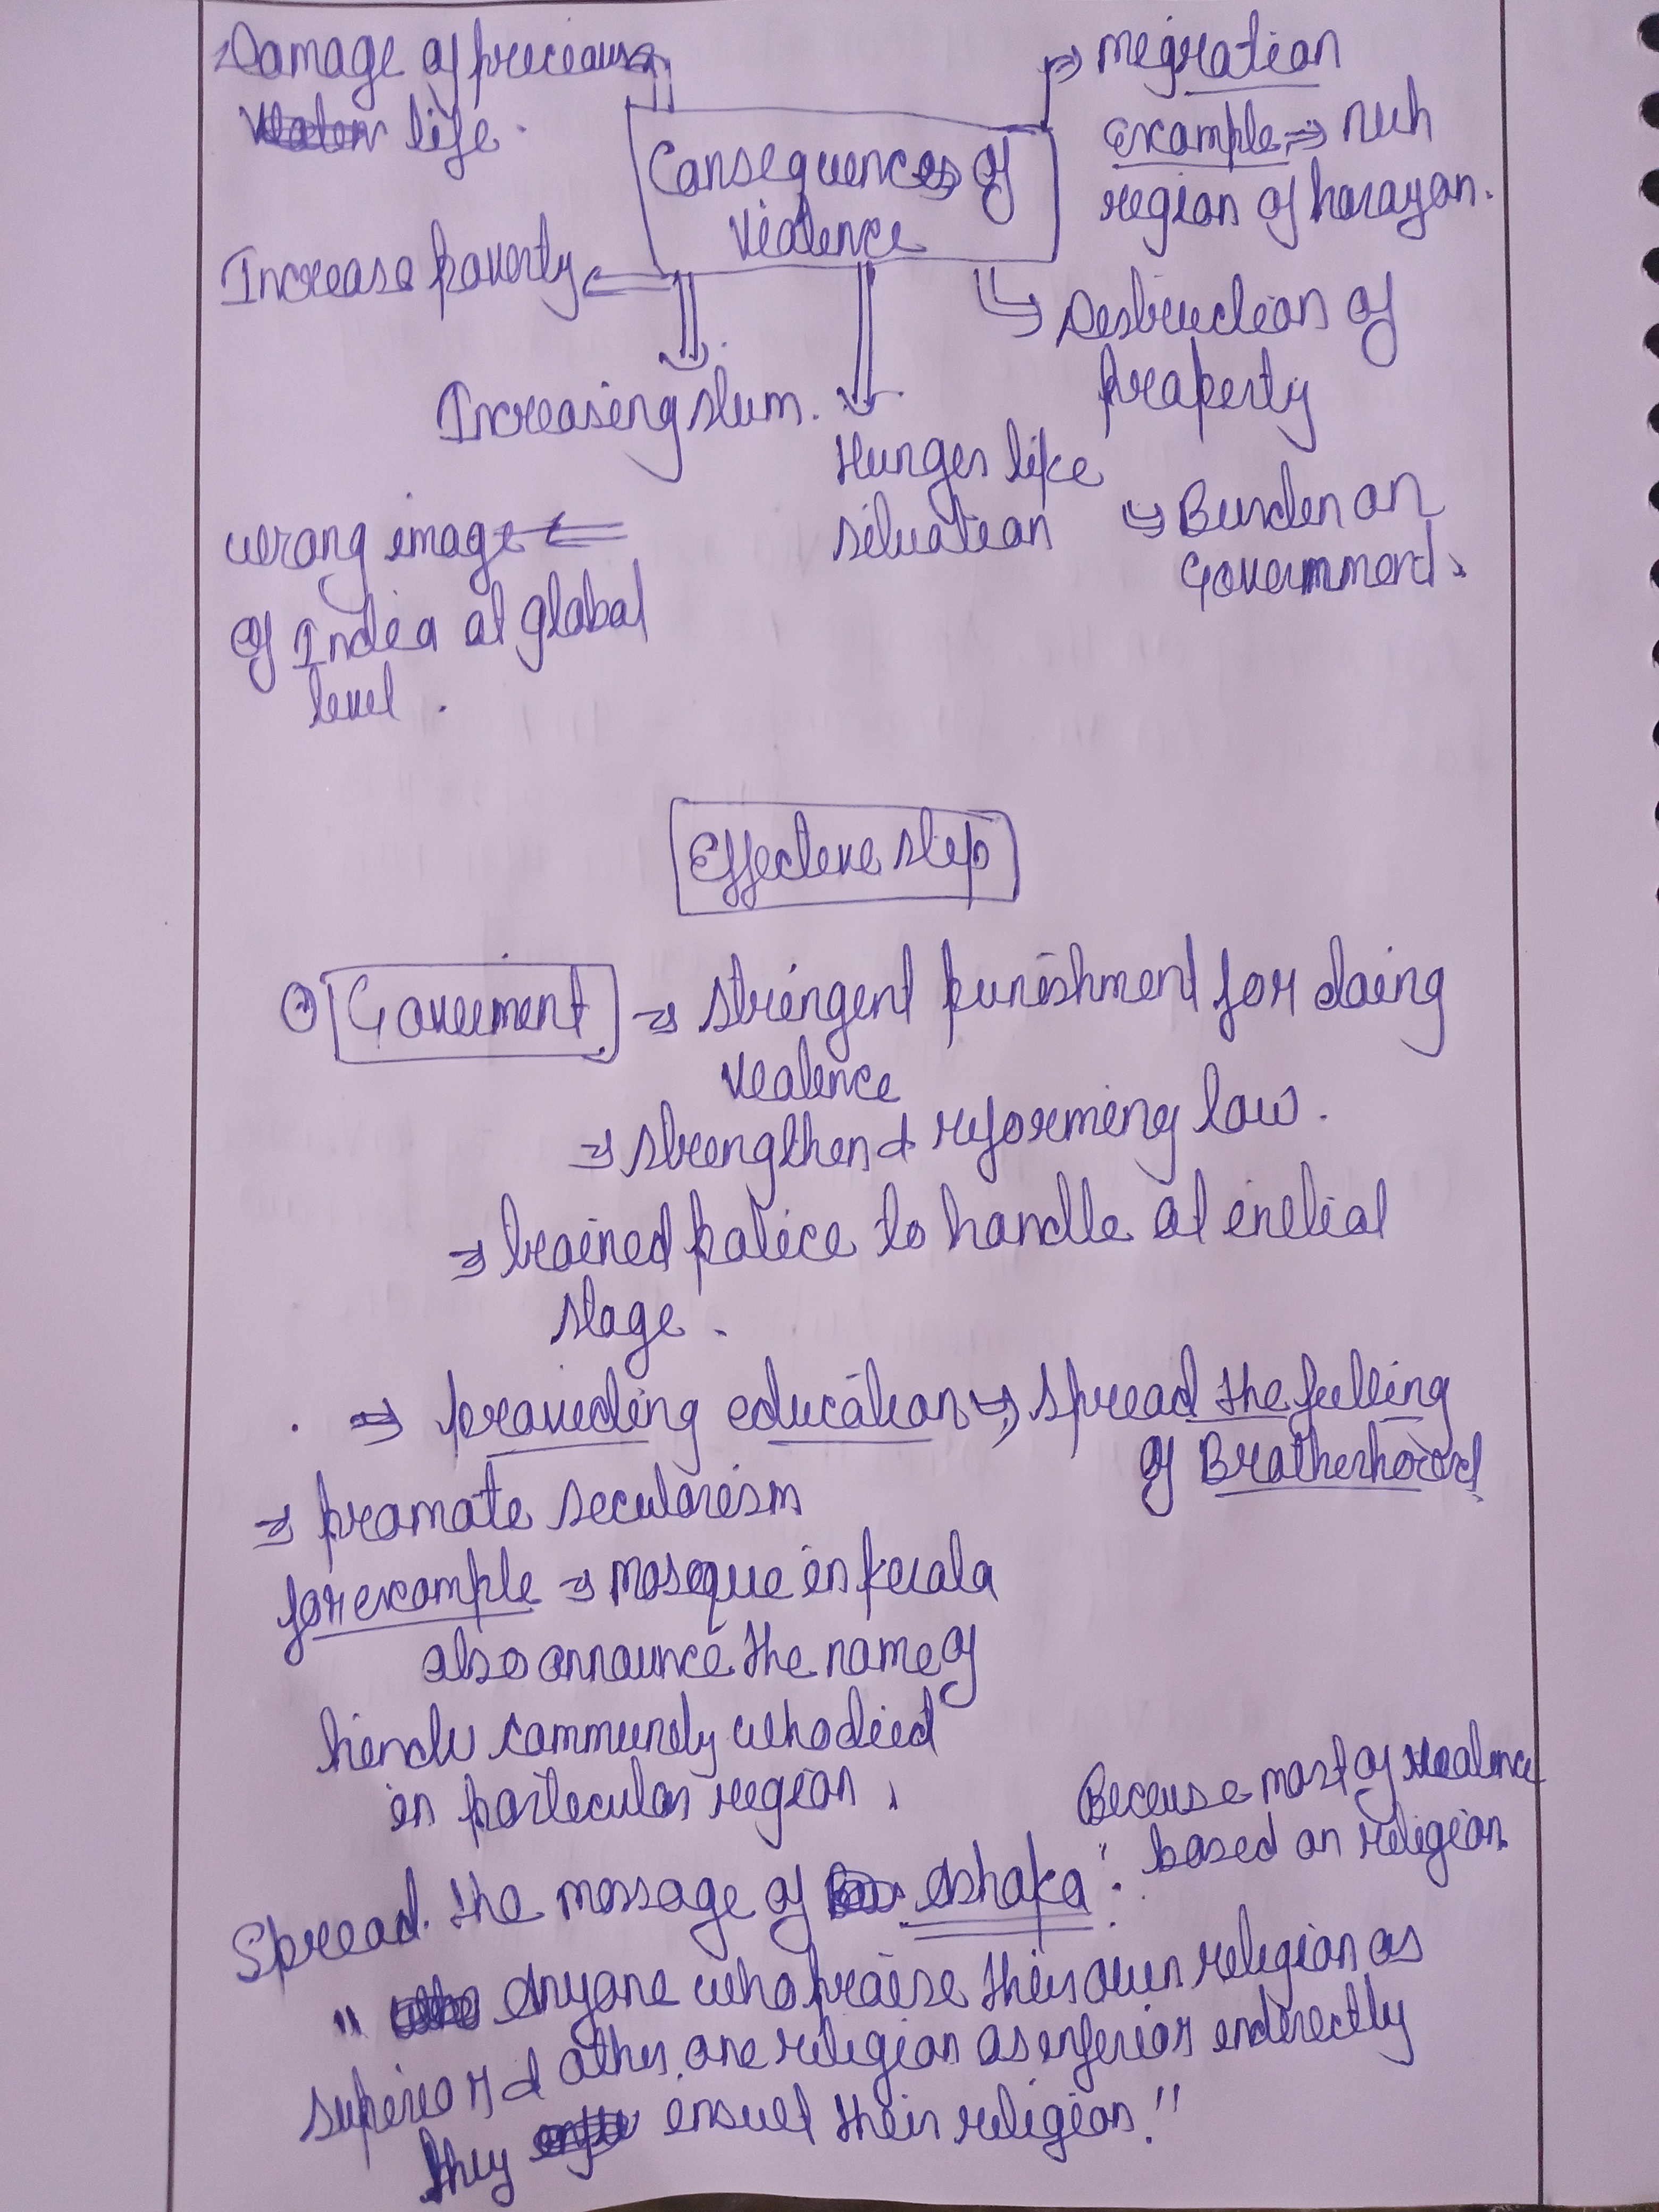 Damage of precious
life.
Consequences of
violence
migration
example ⇒ nuh
region of harayan.
Increase poverty
Destruction of
property
Increasing slum.
Hunger like
situation
Burden on
Government.
wrong image
of India at global
level.
Effective step
Goverment ⇒ stringent punishment for doing
violence
⇒ strengthen & reforming law.
⇒ trained police to handle at initial
stage.
⇒ provieding education ⇒ spread the felling
of Brotherhood
⇒ promote secularism
for example ⇒ mosque in kerala
also announce the name of
hindu community who died
in particular region.
Because most of violence
based on religion
Spread the message of Ashoka:
" Anyone who praise their own religion as
superior & other one religion as inferior indirectly
they insult their religion."